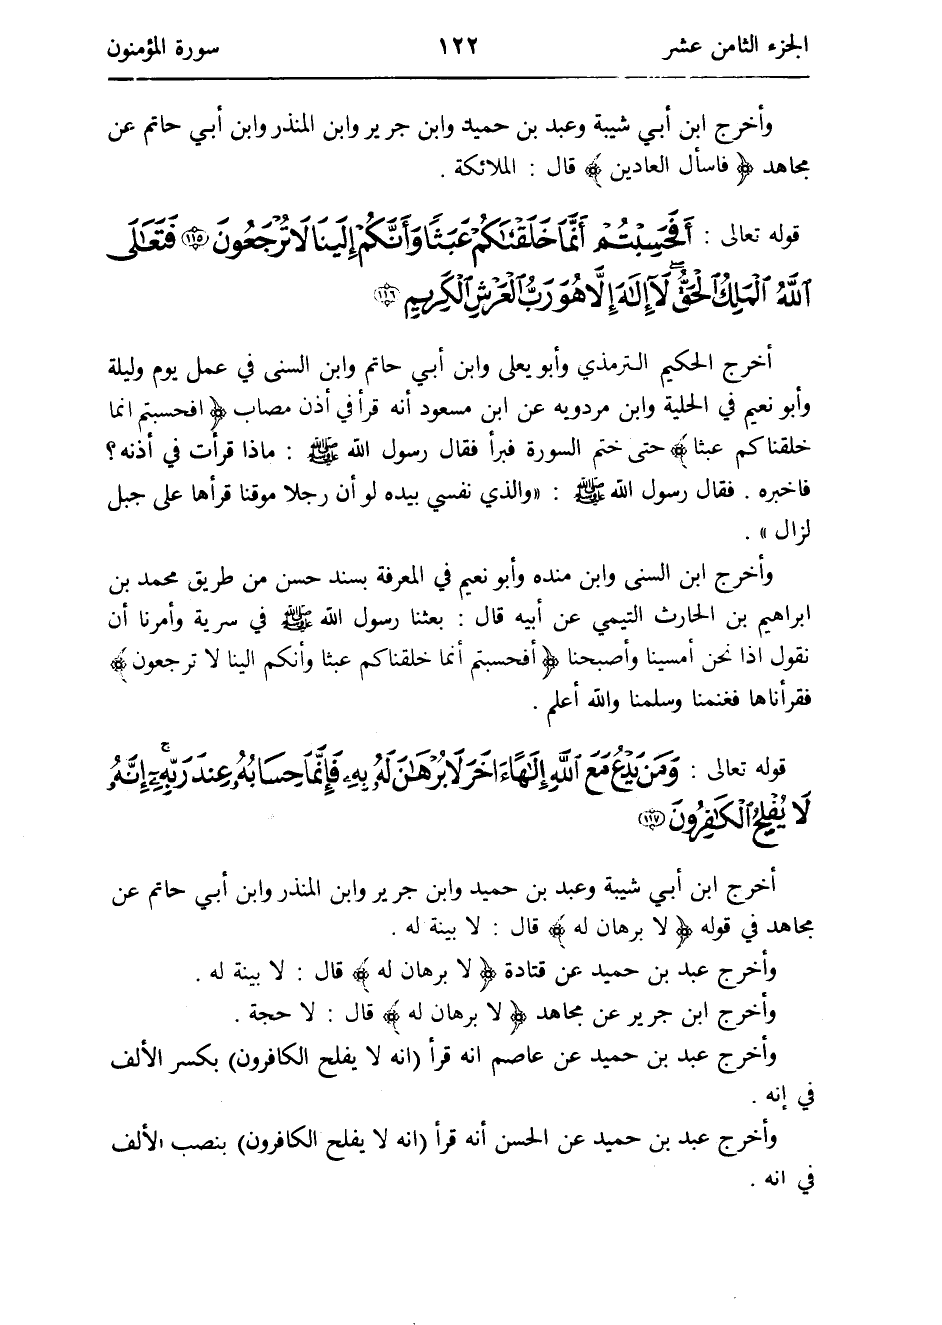 الجزء الثامن عشر ١٢٢ سورة المؤمنون
وأخرج ابن أبي شيبة وعبد بن حميد وابن جرير وابن المنذر وابن أبي حاتم عن
مجاهد ﴿ فاسأل العادين ﴾ قال : الملائكة .
قوله تعالى : أَفَحَسِبْتُمْ أَنَّمَا خَلَقْنَٰكُمْ عَبَثًا وَأَنَّكُمْ إِلَيْنَا لَا تُرْجَعُونَ ﴿١١٥﴾ فَتَعَٰلَى
ٱللَّهُ ٱلْمَلِكُ ٱلْحَقُّ ۖ لَآ إِلَٰهَ إِلَّا هُوَ رَبُّ ٱلْعَرْشِ ٱلْكَرِيمِ ﴿١١٦﴾
أخرج الحكيم الترمذي وأبو يعلى وابن أبي حاتم وابن السنى في عمل يوم وليلة
وأبو نعيم في الحلية وابن مردويه عن ابن مسعود أنه قرأ في أذن مصاب ﴿ افحسبتم انما
خلقناكم عبثا ﴾ حتى ختم السورة فبرأ فقال رسول الله ﷺ : ماذا قرأت في أذنه ؟
فاخبره . فقال رسول الله ﷺ : «والذي نفسي بيده لو أن رجلا موقنا قرأها على جبل
لزال » .
وأخرج ابن السنى وابن منده وأبو نعيم في المعرفة بسند حسن من طريق محمد بن
ابراهيم بن الحارث التيمي عن أبيه قال : بعثنا رسول الله ﷺ في سرية وأمرنا أن
نقول اذا نحن أمسينا وأصبحنا ﴿ أفحسبتم أنما خلقناكم عبثا وأنكم الينا لا ترجعون ﴾
فقرأناها فغنمنا وسلمنا والله أعلم .
قوله تعالى : وَمَن يَدْعُ مَعَ ٱللَّهِ إِلَٰهًا ءَاخَرَ لَا بُرْهَٰنَ لَهُۥ بِهِۦ فَإِنَّمَا حِسَابُهُۥ عِندَ رَبِّهِۦٓ ۚ إِنَّهُۥ
لَا يُفْلِحُ ٱلْكَٰفِرُونَ ﴿١١٧﴾
أخرج ابن أبي شيبة وعبد بن حميد وابن جرير وابن المنذر وابن أبي حاتم عن
مجاهد في قوله ﴿ لا برهان له ﴾ قال : لا بينة له .
وأخرج عبد بن حميد عن قتادة ﴿ لا برهان له ﴾ قال : لا بينة له .
وأخرج ابن جرير عن مجاهد ﴿ لا برهان له ﴾ قال : لا حجة .
وأخرج عبد بن حميد عن عاصم انه قرأ (انه لا يفلح الكافرون) بكسر الألف
في إنه .
وأخرج عبد بن حميد عن الحسن أنه قرأ (انه لا يفلح الكافرون) بنصب الألف
في انه .